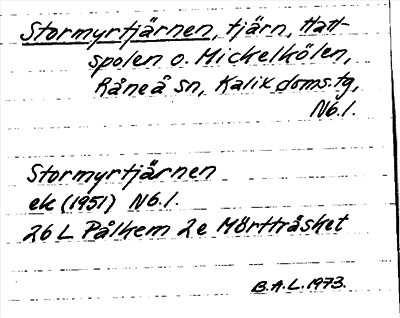 Stormyrtjärnen, tjärn, Hatt-
spolen o. Mickelkölen,
Råneå sn, Kalix doms.tg,
Nb.l.
Stormyrtjärnen
ek (1951) Nb.l.
26 L Pålkem 2e Mörtträsket
B.A.L. 1973.